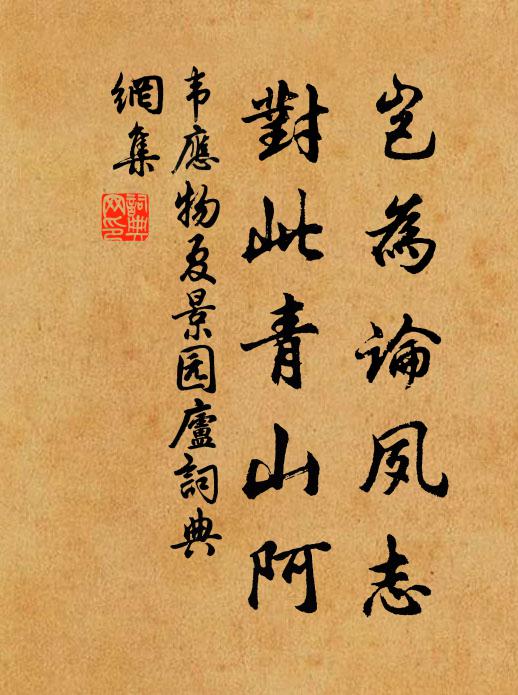 岂為論夙志
對此青山阿
韦應物夏景园廬詞典
網集
詞典网印